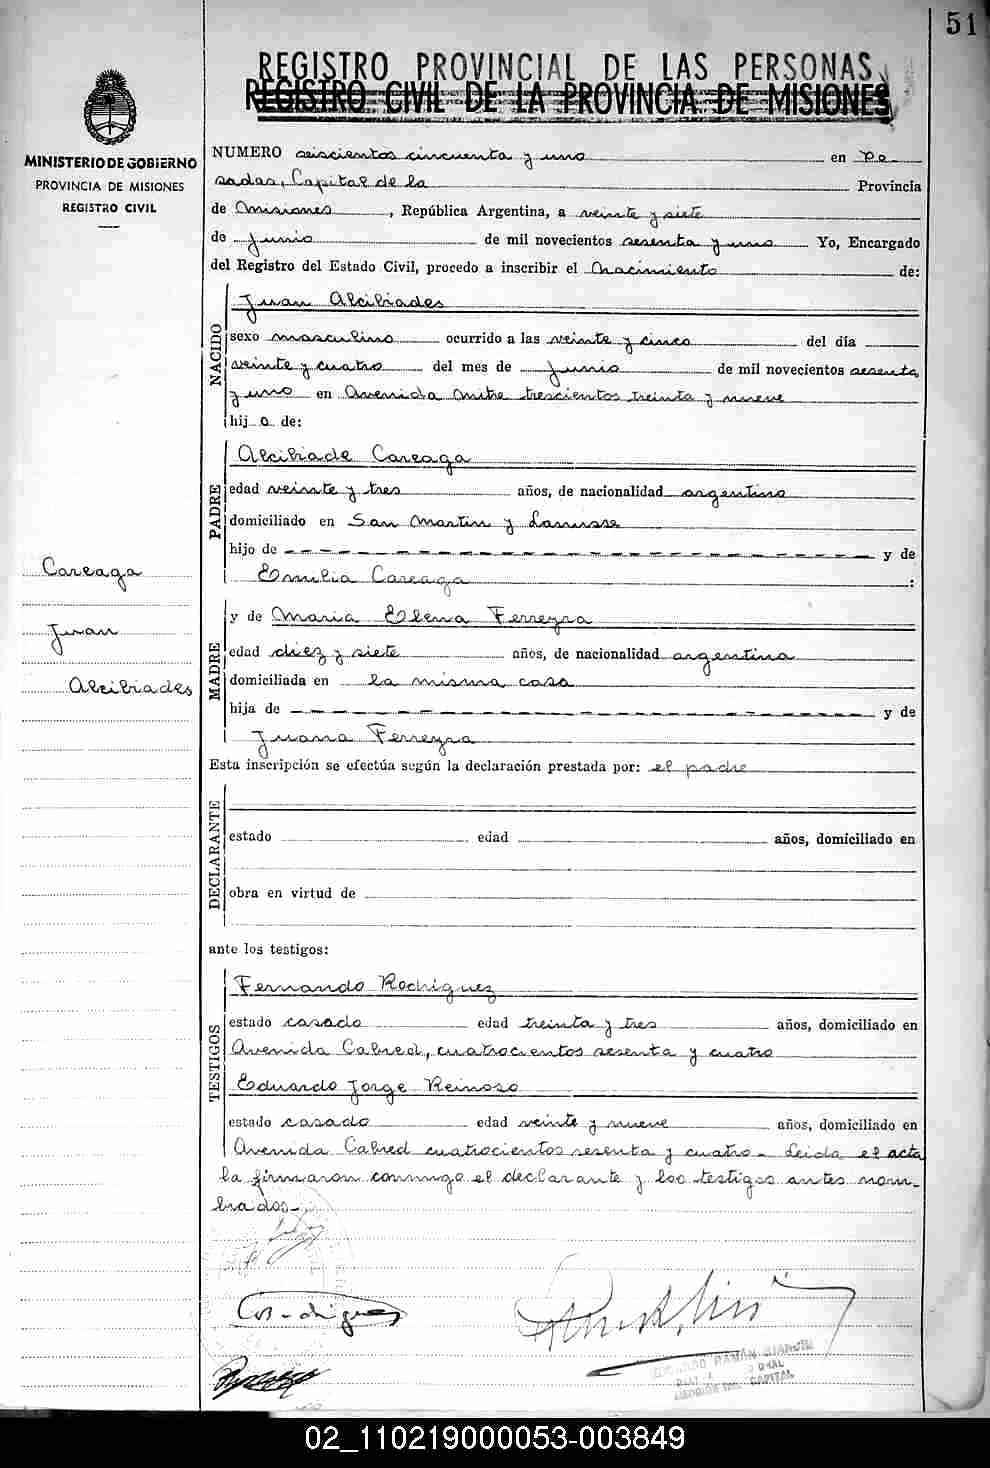 51
REGISTRO PROVINCIAL DE LAS PERSONAS
REGISTRO CIVIL DE LA PROVINCIA DE MISIONES
MINISTERIO DE GOBIERNO
PROVINCIA DE MISIONES
REGISTRO CIVIL
NUMERO seiscientos cincuenta y uno en Po-
sadas, Capital de la Provincia
de Misiones, República Argentina, a veinte y siete
de Junio de mil novecientos sesenta y uno Yo, Encargado
del Registro del Estado Civil, procedo a inscribir el Nacimiento de:
NACIDO
Juan Alcibiades
sexo masculino ocurrido a las veinte y cinco del día
veinte y cuatro del mes de Junio de mil novecientos sesenta
y uno en Avenida Mitre trescientos treinta y nueve
hijo de:
PADRE
Alcibiade Careaga
edad veinte y tres años, de nacionalidad argentino
domiciliado en San Martin y Lanusse
hijo de y de
Emilia Careaga :
Careaga
Juan
Alcibiades
MADRE
y de Maria Elena Ferreyra
edad diez y siete años, de nacionalidad argentina
domiciliada en la misma casa
hija de y de
Juana Ferreyra
Esta inscripción se efectúa según la declaración prestada por: el padre
DECLARANTE
estado edad años, domiciliado en
obra en virtud de
ante los testigos:
TESTIGOS
Fernando Rodriguez
estado casado edad treinta y tres años, domiciliado en
Avenida Cabred, cuatrocientos sesenta y cuatro
Eduardo Jorge Reinoso
estado casado edad veinte y nueve años, domiciliado en
Avenida Cabred cuatrocientos sesenta y cuatro - Leida el acta
la firmaron conmigo el declarante y los testigos antes nom-
brados.-
RAMÓN
CAPITAL
02_110219000053-003849